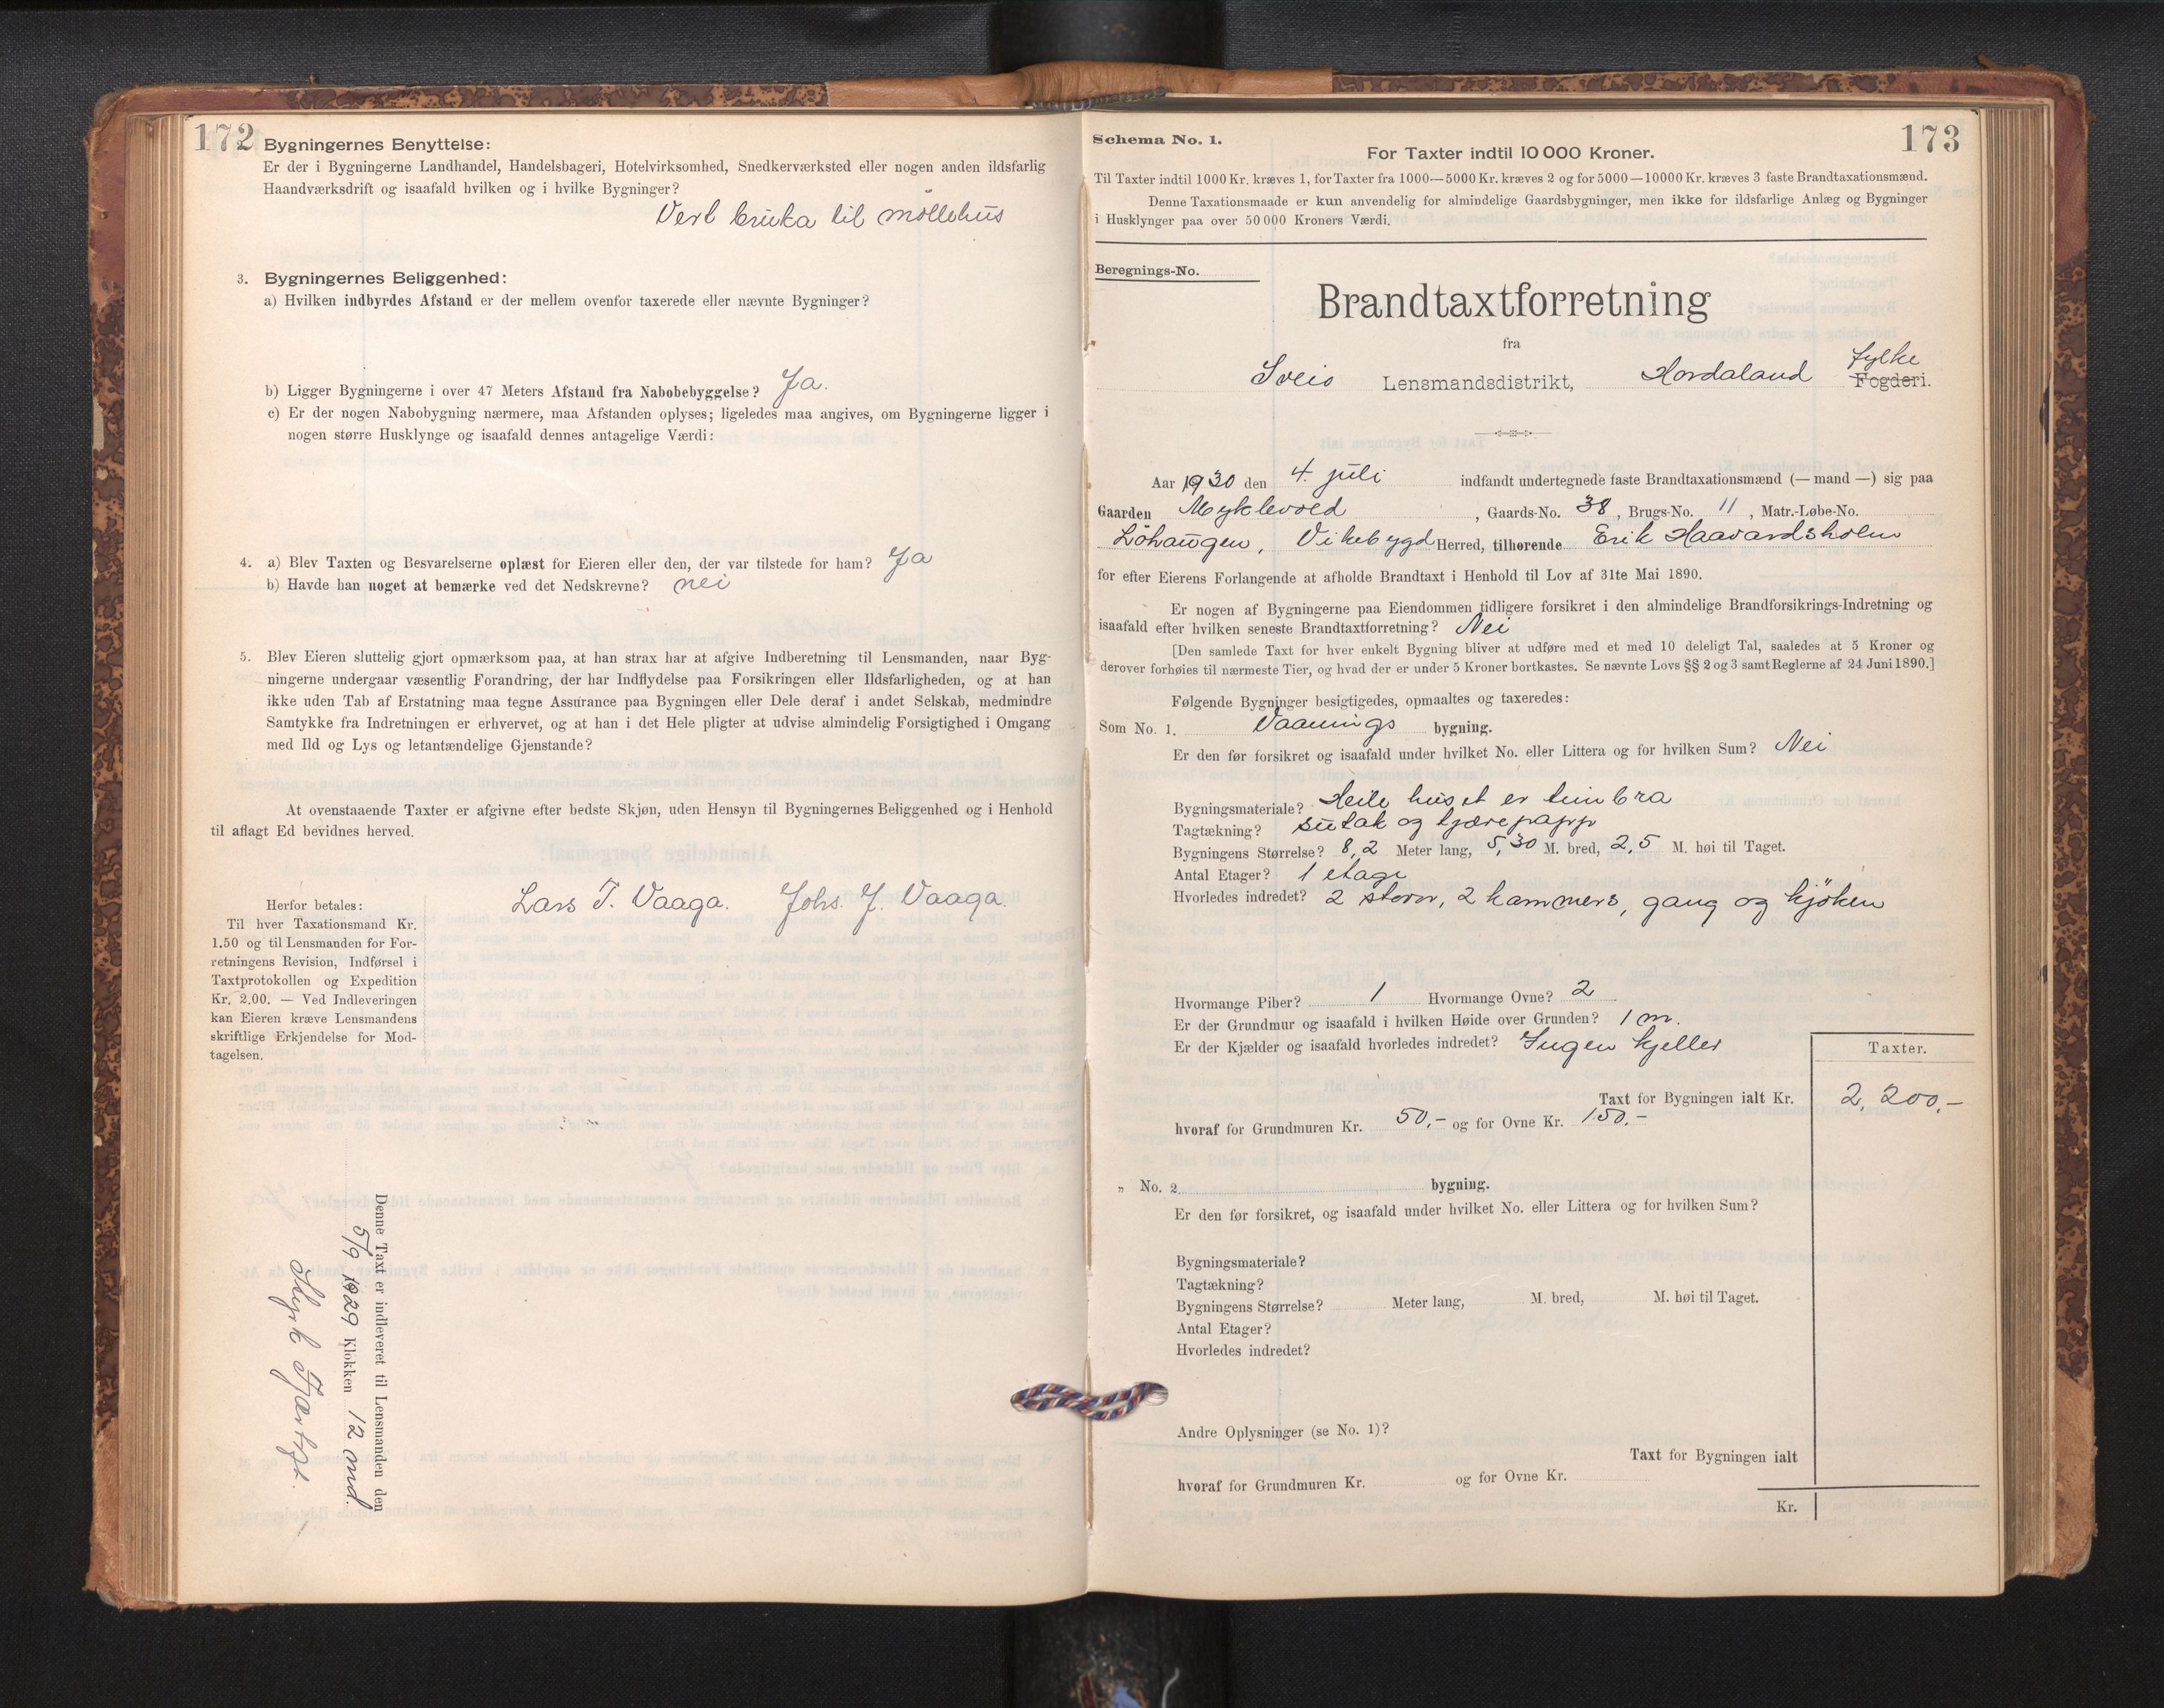 172
Bygningernes Benyttelse:
Er der i Bygningerne Landhandel, Handelsbageri, Hotelvirksomhed, Snedkerværksted eller nogen anden ildsfarlig
Haandværksdrift og isaafald hvilken og i hvilke Bygninger?
Vert bruka til möllehus
3. Bygningernes Beliggenhed:
a) Hvilken indbyrdes Afstand er der mellem ovenfor taxerede eller nævnte Bygninger?
b) Ligger Bygningerne i over 47 Meters Afstand fra Nabobebyggelse? Ja.
c) Er der nogen Nabobygning nærmere, maa Afstanden oplyses; ligeledes maa angives, om Bygningerne ligger i
nogen større Husklynge og isaafald dennes antagelige Værdi:
4. a) Blev Taxten og Besvarelserne oplæst for Eieren eller den, der var tilstede for ham? Ja
b) Havde han noget at bemærke ved det Nedskrevne? nei
5. Blev Eieren sluttelig gjort opmærksom paa, at han strax har at afgive Indberetning til Lensmanden, naar Byg-
ningerne undergaar væsentlig Forandring, der har Indflydelse paa Forsikringen eller Ildsfarligheden, og at han
ikke uden Tab af Erstatning maa tegne Assurance paa Bygningen eller Dele deraf i andet Selskab, medmindre
Samtykke fra Indretningen er erhvervet, og at han i det Hele pligter at udvise almindelig Forsigtighed i Omgang
med Ild og Lys og letantændelige Gjenstande?
At ovenstaaende Taxter er afgivne efter bedste Skjøn, uden Hensyn til Bygningernes Beliggenhed og i Henhold
til aflagt Ed bevidnes herved.
Lars T. Vaaga. Johs. J. Vaaga.
Herfor betales:
Til hver Taxationsmand Kr.
1.50 og til Lensmanden for For-
retningens Revision, Indførsel i
Taxtprotokollen og Expedition
Kr. 2.00. — Ved Indleveringen
kan Eieren kræve Lensmandens
skriftlige Erkjendelse for Mod-
tagelsen.
Denne Taxt er indleveret til Lensmanden den
5/9 1929 Klokken 12 md.
173
Schema No. 1.
For Taxter indtil 10 000 Kroner.
Til Taxter indtil 1000 Kr. kræves 1, for Taxter fra 1000—5000 Kr. kræves 2 og for 5000—10000 Kr. kræves 3 faste Brandtaxationsmænd.
Denne Taxationsmaade er kun anvendelig for almindelige Gaardsbygninger, men ikke for ildsfarlige Anlæg og Bygninger
i Husklynger paa over 50 000 Kroners Værdi.
Beregnings-No.
Brandtaxtforretning
fra
fylke
Sveio Lensmandsdistrikt, Hordaland Fogderi.
Aar 1930 den 4. juli indfandt undertegnede faste Brandtaxationsmænd (— mand —) sig paa
Gaarden Myklevold, Gaards-No. 38, Brugs-No. 11, Matr.-Løbe-No.
Löhaugen, Vikebygd Herred, tilhørende Erik Haavardsholm
for efter Eierens Forlangende at afholde Brandtaxt i Henhold til Lov af 31te Mai 1890.
Er nogen af Bygningerne paa Eiendommen tidligere forsikret i den almindelige Brandforsikrings-Indretning og
isaafald efter hvilken seneste Brandtaxtforretning? Nei
[Den samlede Taxt for hver enkelt Bygning bliver at udføre med et med 10 deleligt Tal, saaledes at 5 Kroner og
derover forhøies til nærmeste Tier, og hvad der er under 5 Kroner bortkastes. Se nævnte Lovs §§ 2 og 3 samt Reglerne af 24 Juni 1890.]
Følgende Bygninger besigtigedes, opmaaltes og taxeredes:
Som No. 1. Vaanings bygning.
Er den før forsikret og isaafald under hvilket No. eller Littera og for hvilken Sum? Nei
Bygningsmateriale? Heile huset er timbra
Tagtækning? sutak og tjærepapp
Bygningens Størrelse? 8,2 Meter lang, 5,30 M. bred, 2,5 M. høi til Taget.
Antal Etager? 1 etage
Hvorledes indredet? 2 stover, 2 kammers, gang og kjöken
Hvormange Piber? 1 Hvormange Ovne? 2
Er der Grundmur og isaafald i hvilken Høide over Grunden? 1 m.
Er der Kjælder og isaafald hvorledes indredet? Ingen kjeller
Taxter.
Taxt for Bygningen ialt Kr. 2,200,-
hvoraf for Grundmuren Kr. 50,- og for Ovne Kr. 150,-
„ No. 2. bygning.
Er den før forsikret, og isaafald under hvilket No. eller Littera og for hvilken Sum?
Bygningsmateriale?
Tagtækning?
Bygningens Størrelse? Meter lang, M. bred, M. høi til Taget.
Antal Etager?
Hvorledes indredet?
Andre Oplysninger (se No. 1)?
Taxt for Bygningen ialt
hvoraf for Grundmuren Kr. og for Ovne Kr.
Kr.